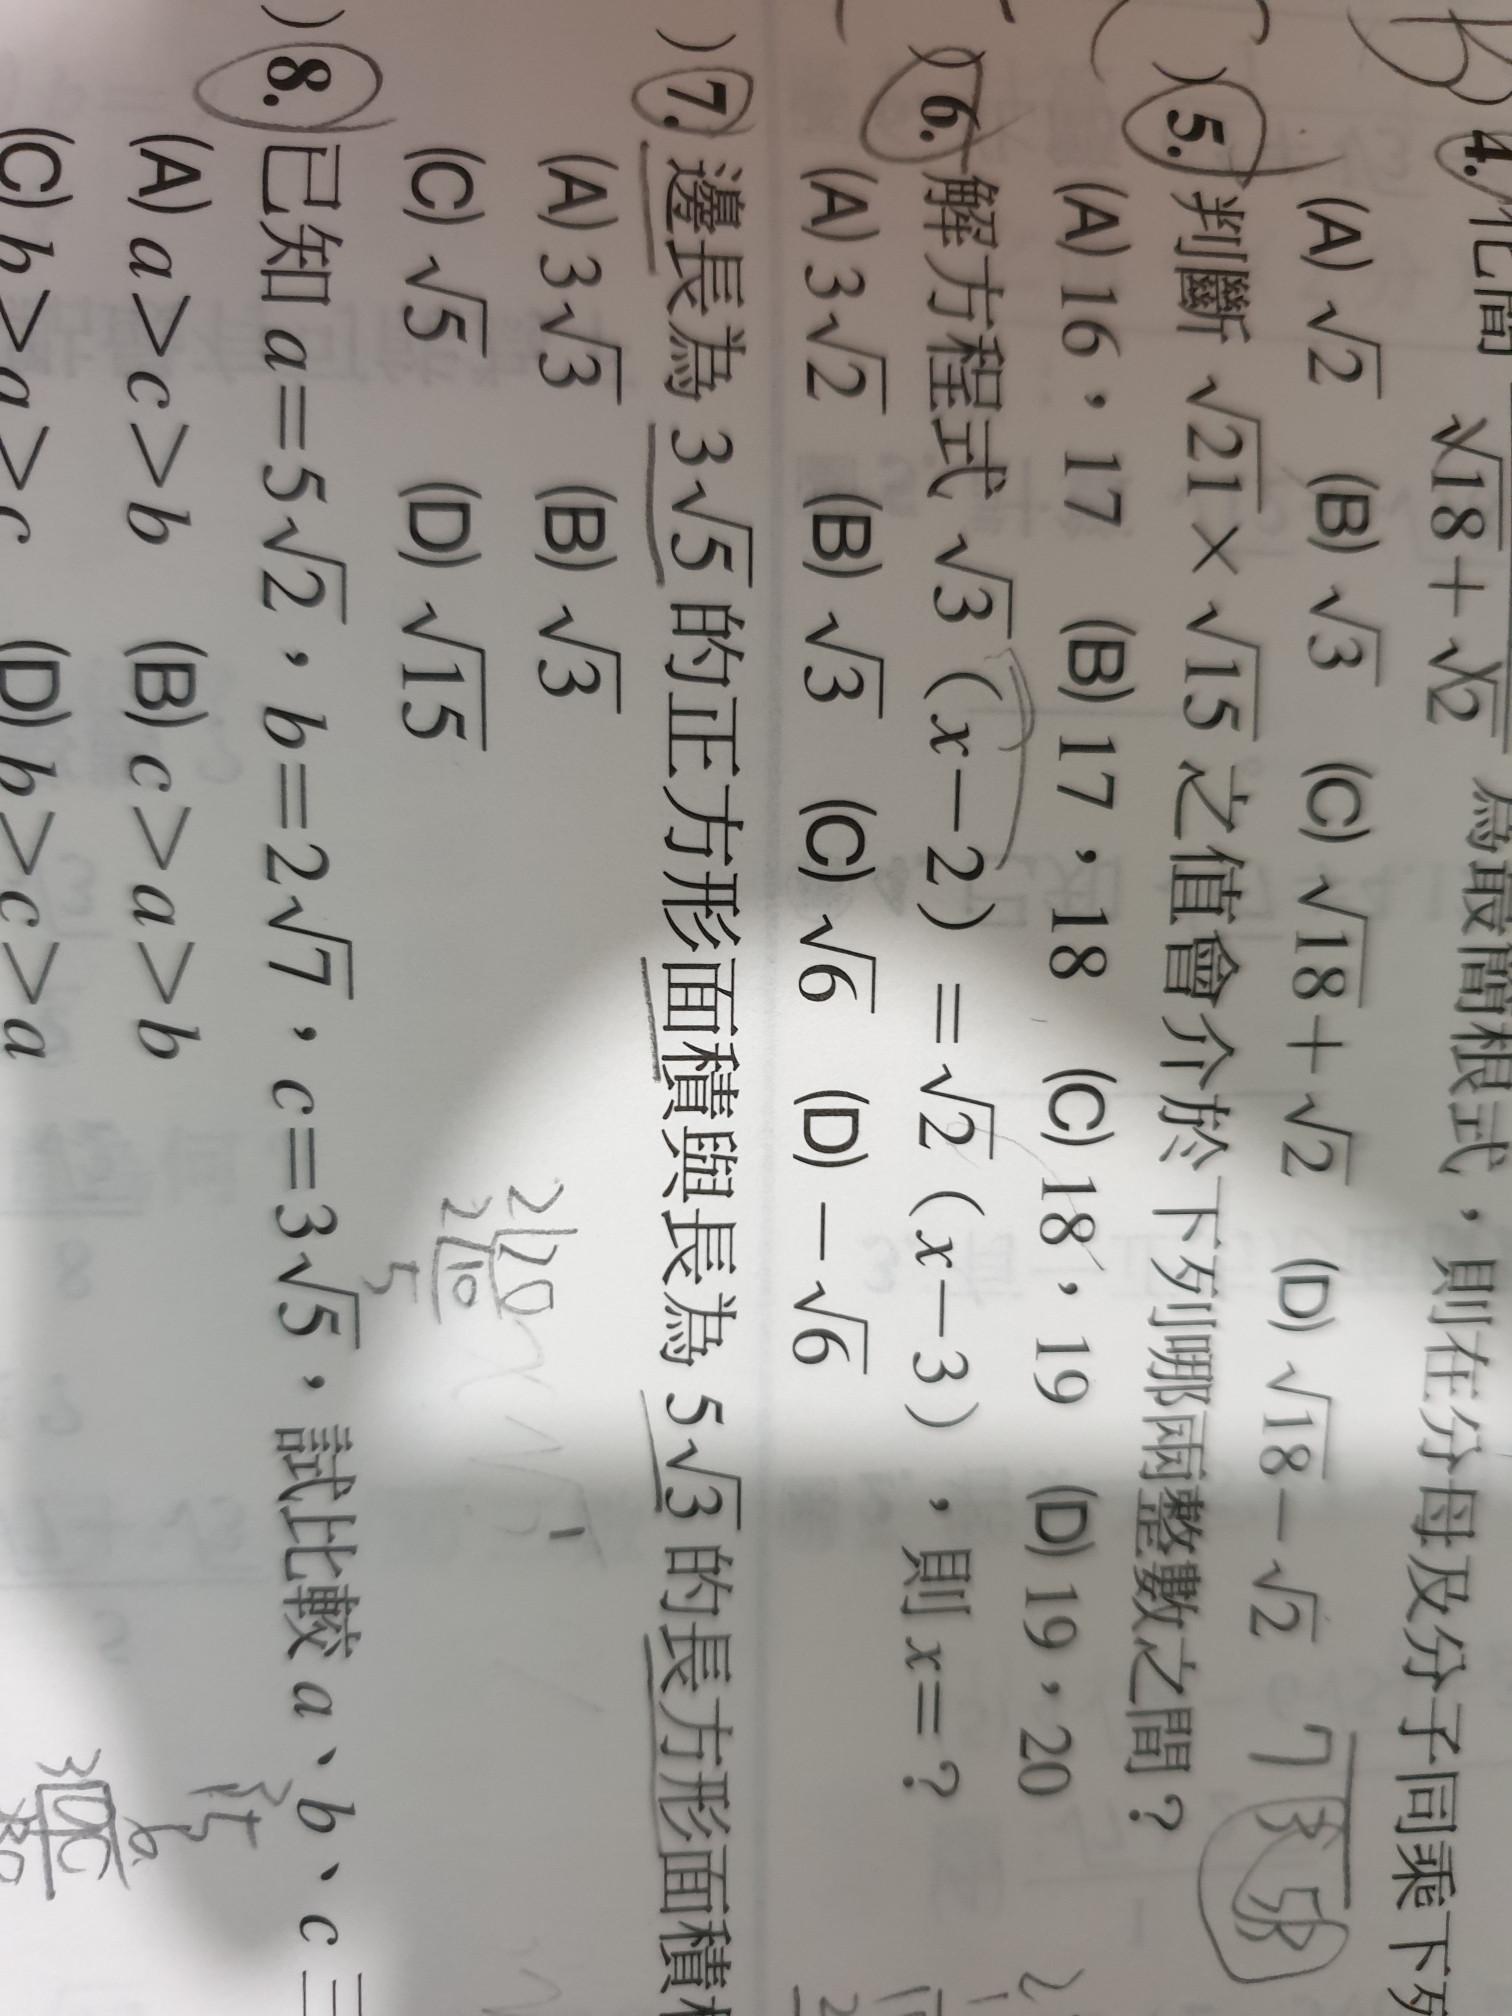 4. 化簡 √18+√2 為最簡根式，則在分母及分子同乘下列
(A) √2 (B) √3 (C) √18+√2 (D) √18−√2
)5. 判斷 √21×√15 之值會介於下列哪兩整數之間？
(A) 16，17 (B) 17，18 (C) 18，19 (D) 19，20
)6. 解方程式 √3（x−2）=√2（x−3），則 x=？
(A) 3√2 (B) √3 (C) √6 (D) −√6
)7. 邊長為 3√5 的正方形面積與長為 5√3 的長方形面積
(A) 3√3 (B) √3
(C) √5 (D) √15
)8. 已知 a=5√2，b=2√7，c=3√5，試比較 a、b、c 三
(A) a>c>b (B) c>a>b
(C) b>a>c (D) b>c>a